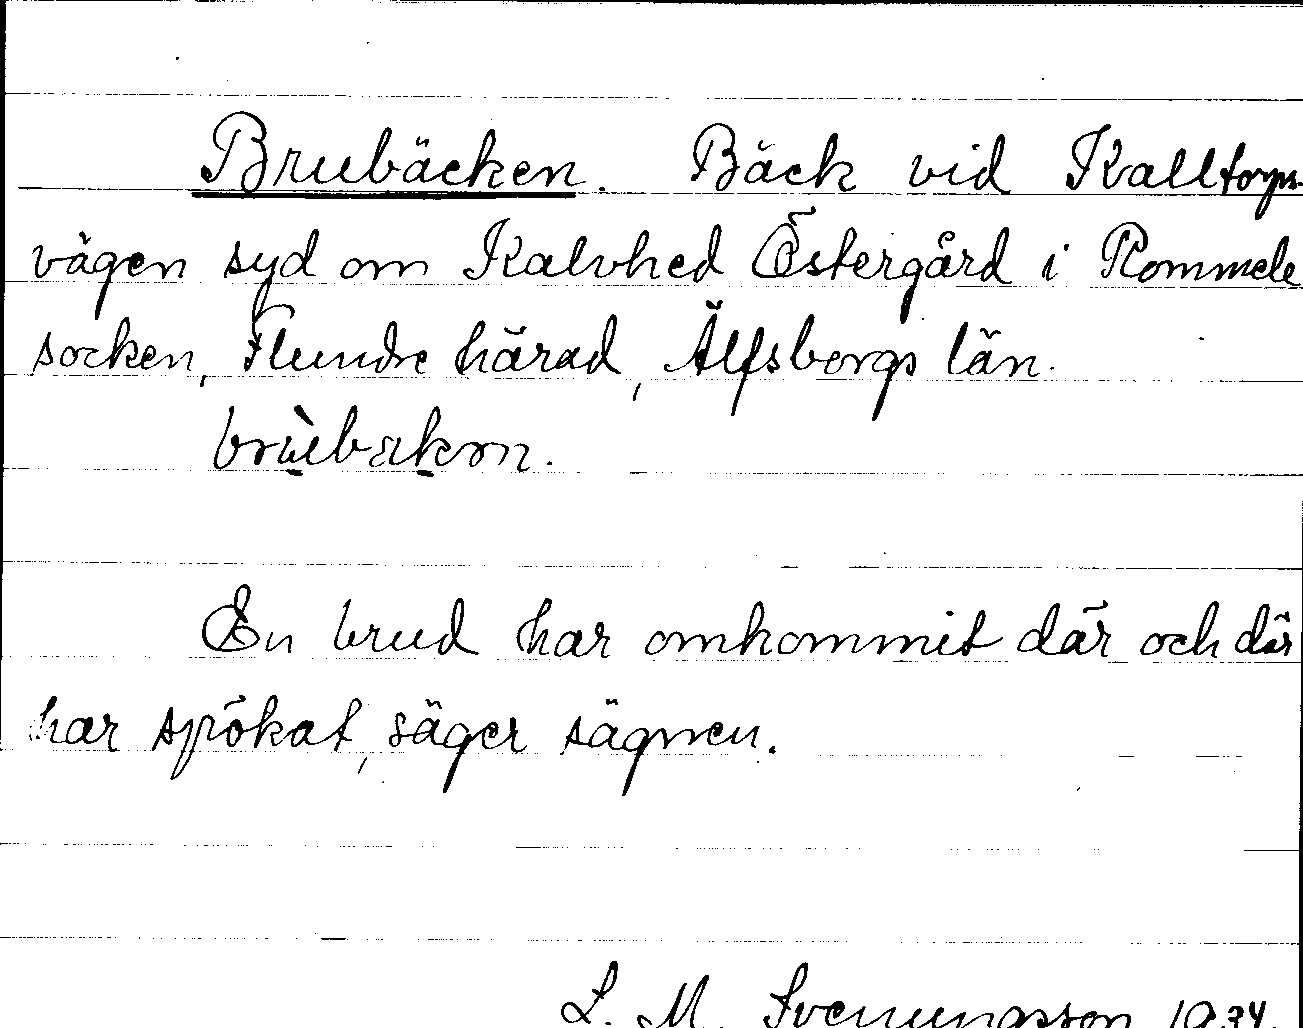 Brubäcken. Bäck vid Kalltorps-
vägen syd om Kalvhed Östergård i Rommele
socken, Flundre härad, Älfsborgs län.
En brud har omkommit där och där
har spökat, säger sägnen.
L. M. Svenungsson 1934.